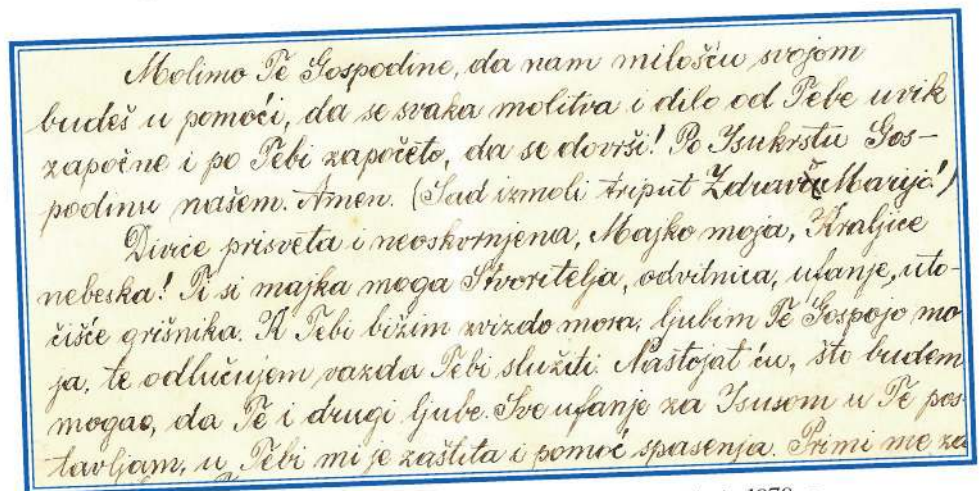 Molimo Te Gospodine, da nam milošću svojom
budeš u pomoći, da se svaka molitva i dilo od Tebe uvik
započne i po Tebi započeto, da se dovrši! Po Isukrstu Gos-
podinu našem. Amen. (Sad izmoli triput Zdravo Marijo!)
Divice prisveta i neoskvrnjena, Majko moja, Kraljice
nebeska! Ti si majka moga Stvoritelja, odvitnica, ufanje, uto-
čišće grišnika. K Tebi bižim zvizdo mora, ljubim Te Gospojo mo
ja, te odlučujem vazda Tebi služiti. Nastojat ću, što budem
mogao, da Te i drugi ljube. Sve ufanje za Isusom u Te pos-
tavljam, u Tebi mi je zaštita i pomoć spasenja. Primi me za
1878